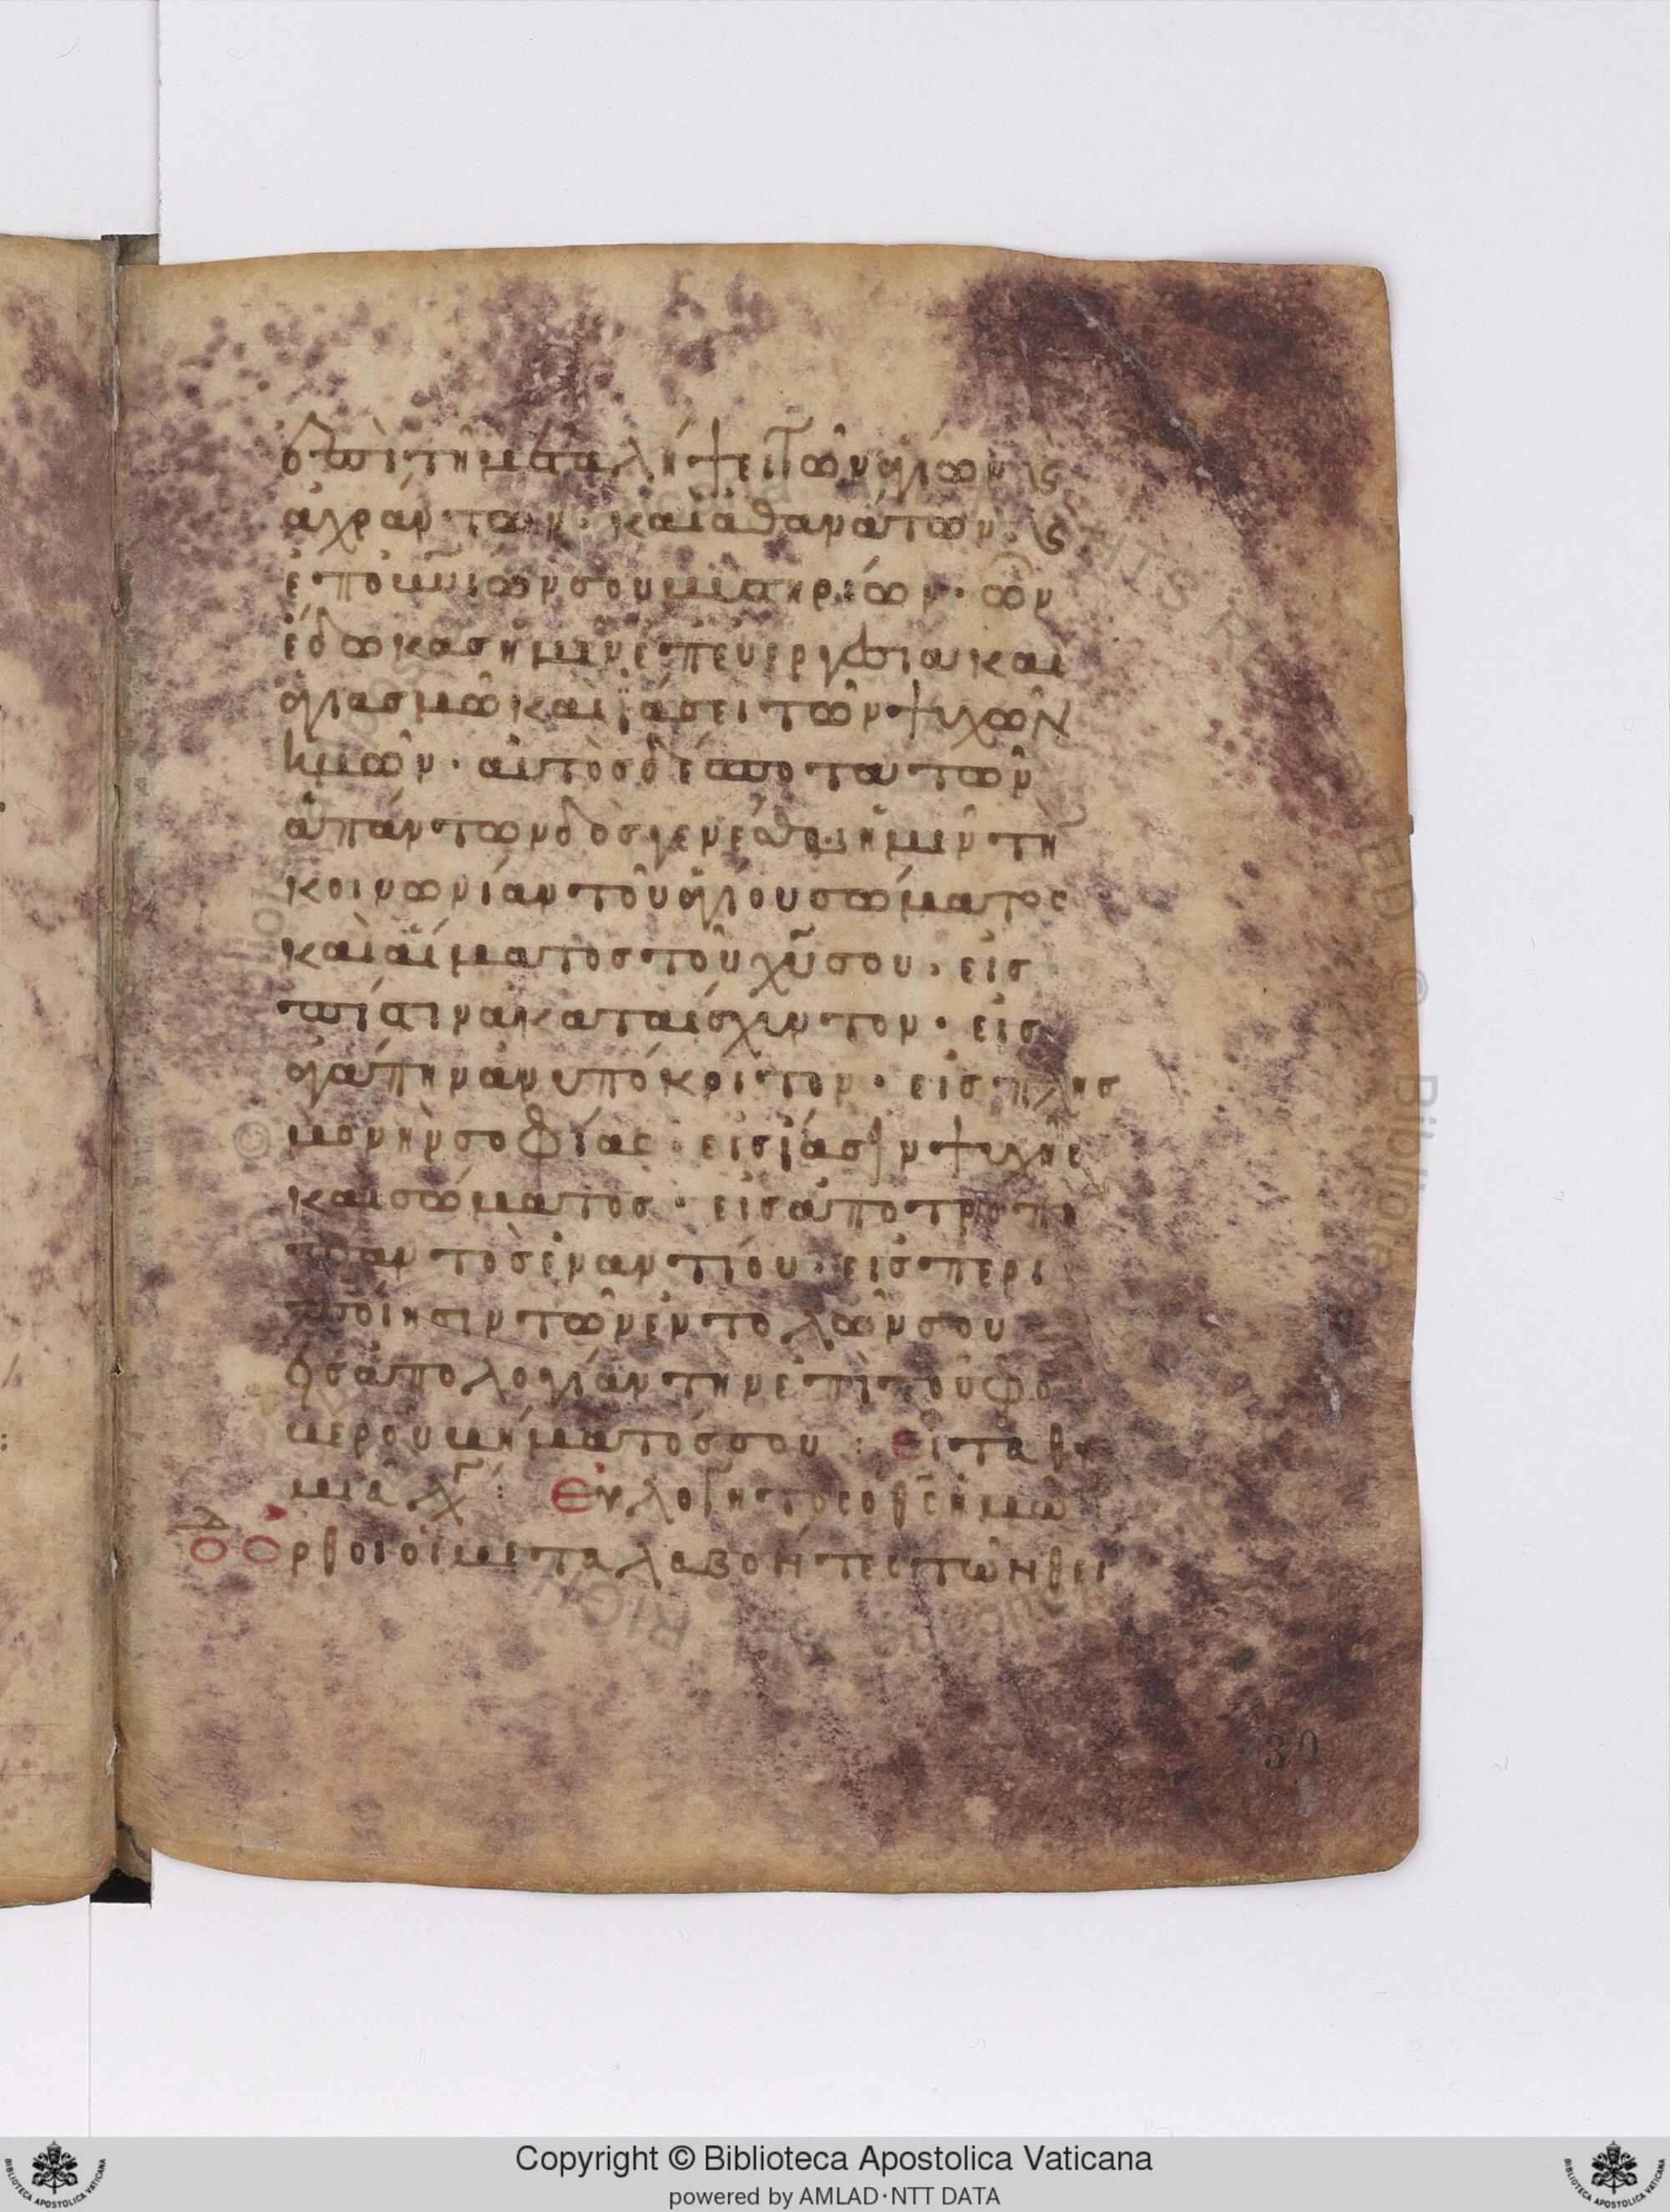 ἐπὶ τῆ μεταλήψει τῶν ἁγίων (καὶ)
ἀχράντων· καὶ ἀθανάτων· (καὶ)
ἐπουνίων σου μυστηρίων· ὧν
ἔδωκας ἡμῖν ἐπ εὐεργεσία καὶ
ἁγιασμῶ καὶ ϊάσει τῶν ψυχῶν
ἡμῶν· αὐτὸς δέσποτα τῶν
ἁπάντων δὸς γενέσθαι ἡμῖν τὴ
κοινωνίαν τοῦ ἁγίου σώματος
καὶ αἵματος τοῦ χῦ σου· εἰς
πίστιν ἀκαταίσχυντον· εἰς
ἀγάπην ἀνυπόκριτον· εἰς πλησ
μονὴν σοφίας· εἰς ἴασην ψυχῆς
καὶ σώματος· εἰς ἀποτροπὴ
παντὸς ἐναντίου· εἰς περι
ποίησιν τῶν ἐντολῶν σου
εἰς ἀπολογίαν τὴν ἐπὶ τοῦ φο
βεροῦ βήματός σου: Εἰς τὰ θυ
μιᾶ λγ: Εὐλογητὸς ὁ θς ἡμῶ
Ὀρθοὶ οἱ μεταλαβόντες τῶν θεί
30
Copyright © Biblioteca Apostolica Vaticana
powered by AMLAD·NTT DATA